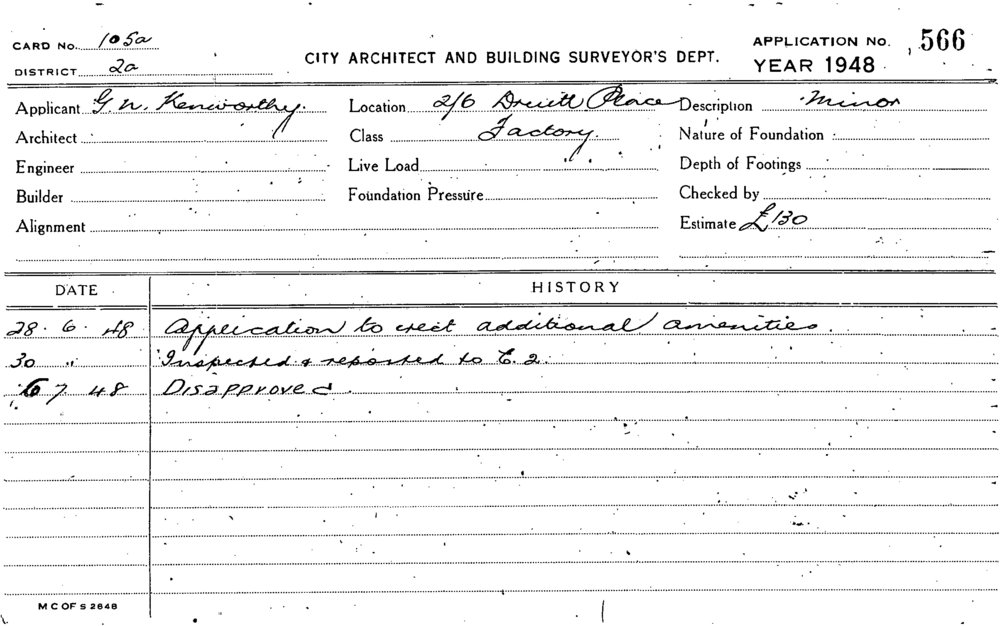 CARD No. 105a
DISTRICT 2a
CITY ARCHITECT AND BUILDING SURVEYOR'S DEPT.
APPLICATION No. 566
YEAR 1948
Applicant G. W. Kenworthy. Location 2/6 Druitt Place Description Minor
Architect Class Factory. Nature of Foundation
Engineer Live Load Depth of Footings
Builder Foundation Pressure Checked by
Alignment Estimate £130
DATE HISTORY
28. 6. 48 Application to erect additional amenities.
30 " Inspected & reported to E. 2.
6 7 48 Disapproved.
M C OF S 2648